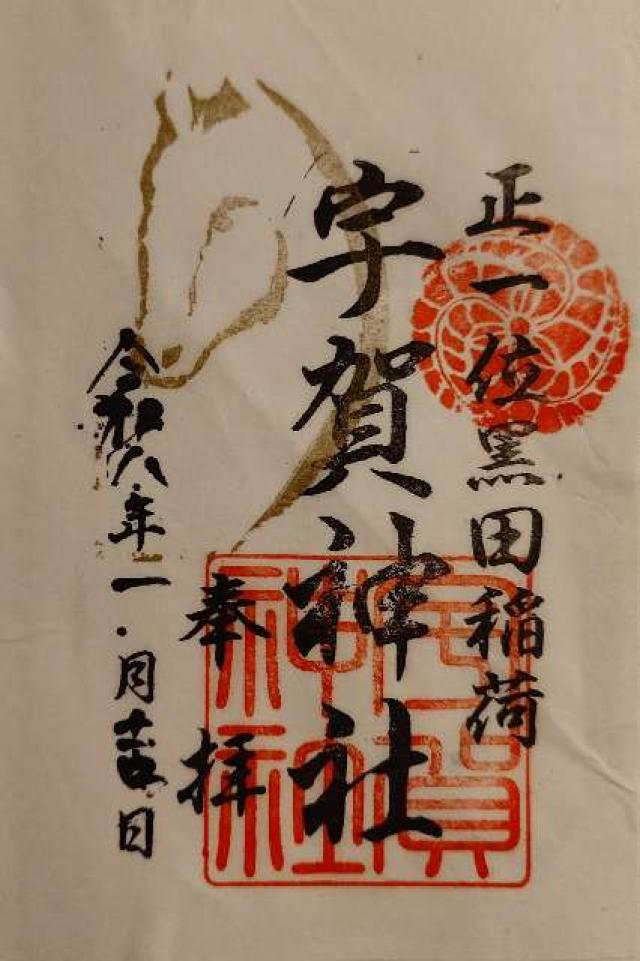 正一位黒田稲荷
宇賀神社
奉拝
令和八年一月十日
宇賀
神社